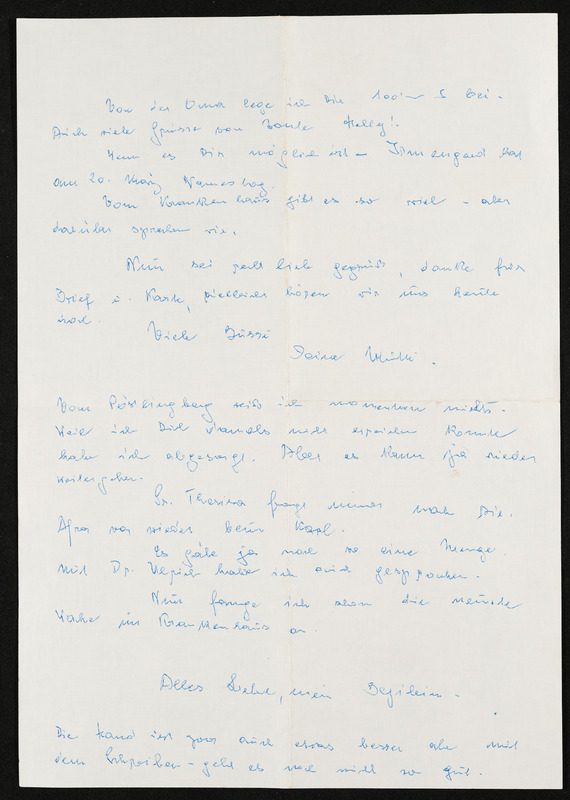 Von der Oma lege ich Dir 100.- S bei.
Auch viele Grüsse von Tante Helly!
Wenn es Dir möglich ist - Irmengard hat
am 20. März Namestag.
Vom Krankenhaus gibt es so viel - aber
darüber sprechen wir.
Nun sei sehr lieb gegrüßt, danke fürn
Brief u. Karte, vielleicht hören wir uns heute
noch.
Viele Bussi
Deine Mutti.
Vom Pöstlingberg weiß ich momentan nichts.
Weil ich Dich damals nicht erreichen konnte
habe ich abgesagt. Aber es kann ja wieder
weitergehen.
Sr. Theresa fragt immer nach Dir.
Afra war wieder beim Karl.
Es gäbe ja noch so eine Menge.
Mit Dr. Ulrich habe ich auch gesprochen.
Nun fange ich schon die neunte
Woche im Krankenhaus an.
Alles Liebe, mein
Die Hand ist zwar auch etwas besser aber mit
dem Schreiben - geht es noch nicht so gut.